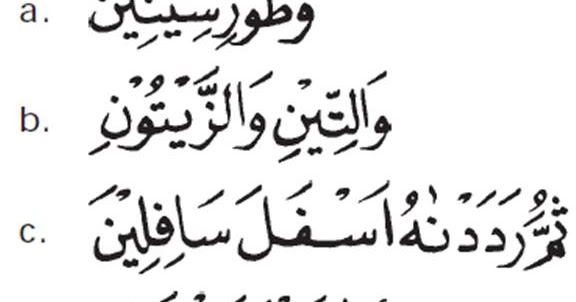 a. وَطُورِسِيْنِيْنَ
b. وَالتِّيْنِ وَالزَّيْتُوْنِ
c. ثُمَّ رَدَدْنٰهُ اَسْفَلَ سَافِلِيْنَ